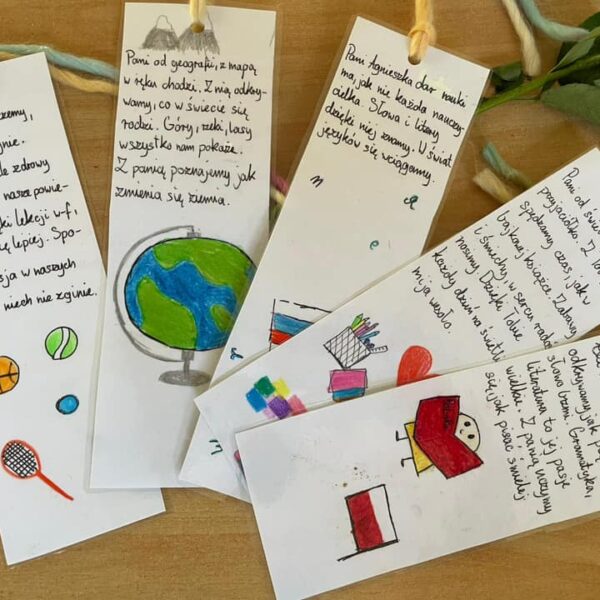 zemy,
ynie.
zdrowy
nasze powie-
ki lekcji w-f,
lepiej. Spo-
sja w naszych
niech nie zginie.
Pani od geografii, z mapą
w ręku chodzi. Z nią odkry-
wamy, co w świecie się
rodzi. Góry, rzeki, lasy
wszystko nam pokaże.
Z panią poznajemy jak
zmienia się ziemia.
Pani Agnieszka dar nauki
ma, jak nie każda nauczy-
cielka Słowa i litery
dzięki niej znamy. W świat
języków się wciągamy.
Pani od świe
przyjaciółka. Z To
spędzamy czas, jak w
bajkowej książce. Zabawy
i śmiechy, w sercu rado
nosimy. Dzięki Tobie
każdy dzień na świetli
mija wesoło.
odkrywamy jak pię
słowo brzmi. Gramatyka,
literatura to jej pasje
wielkie. Z Panią uczymy
się, jak pisać śmielej